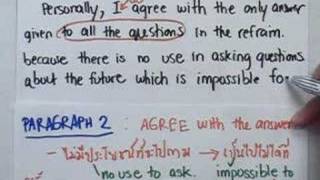 Personally, I agree with the only answer
given to all the questions in the refrain.
because there is no use in asking questions
about the future which is impossible for
PARAGRAPH 2 : AGREE with the answer
- ไม่มีประโยชน์ที่จะไปถาม → เป็นไปไม่ได้ที่
no use to ask. impossible to